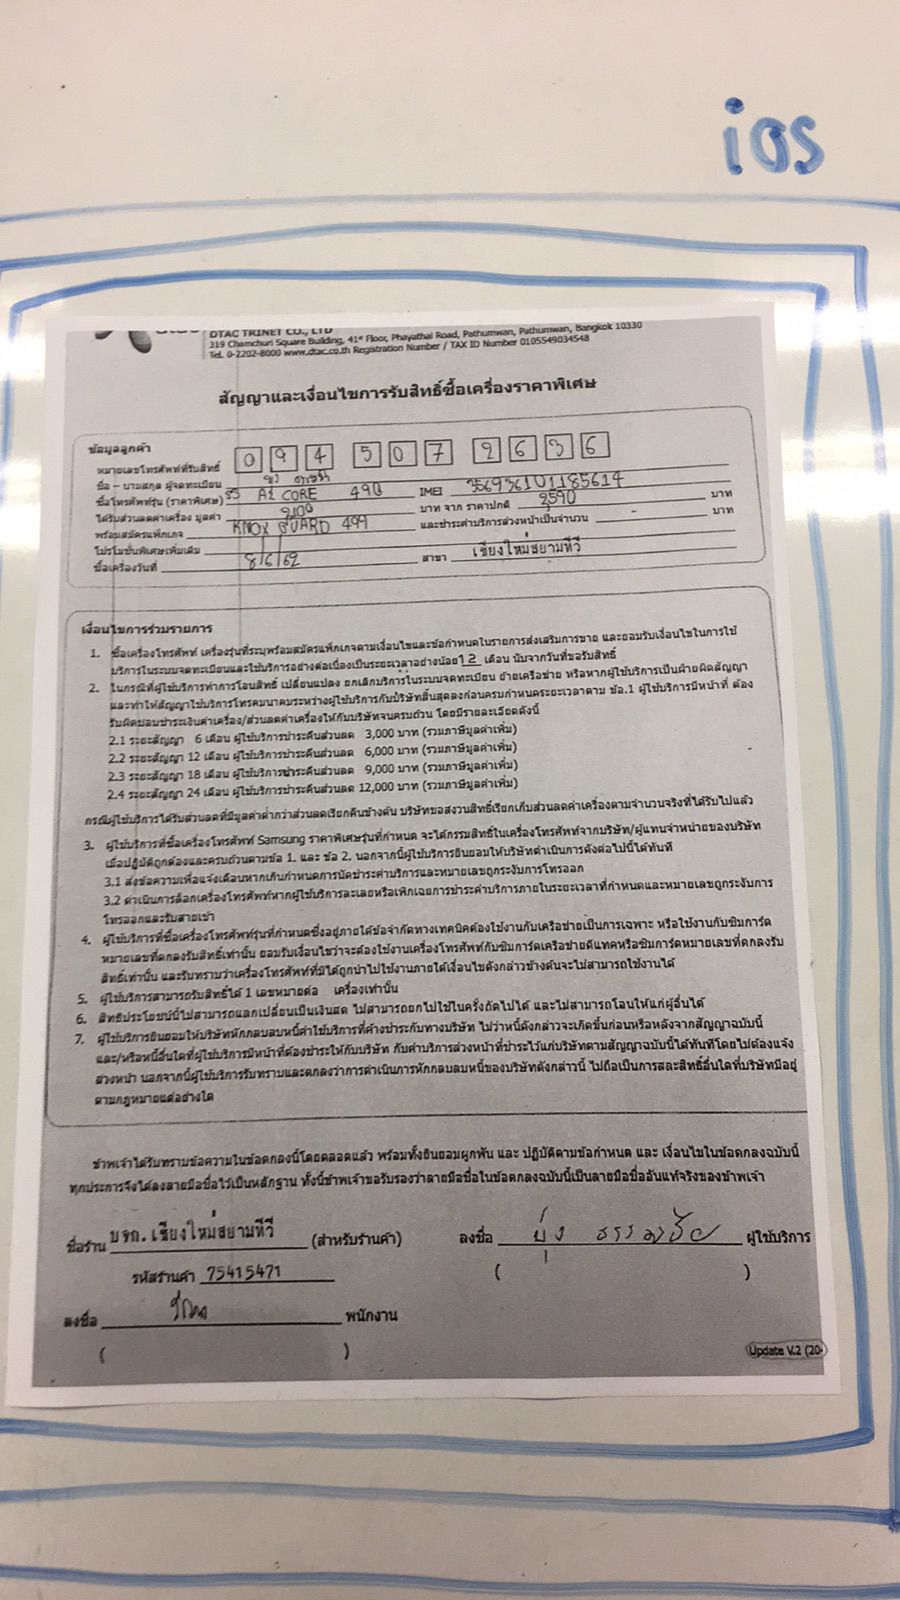 ios
DTAC TRINET CO., LTD
319 Chamchuri Square Building, 41st Floor, Phayathai Road, Pathumwan, Pathumwan, Bangkok 10330
Tel. 0-2202-8000 www.dtac.co.th Registration Number / TAX ID Number 0105549034548
สัญญาและเงื่อนไขการรับสิทธิ์ซื้อเครื่องราคาพิเศษ
ข้อมูลลูกค้า
หมายเลขโทรศัพท์ที่รับสิทธิ์ 094 507 2636
ชื่อ – นามสกุล ผู้จดทะเบียน
ชื่อโทรศัพท์รุ่น (ราคาพิเศษ) A2 CORE 490 IMEI 356936101185614
ได้รับส่วนลดค่าเครื่อง มูลค่า 2100 บาท จาก ราคาปกติ 2590 บาท
พร้อมสมัครแพ็กเกจ KNOX GUARD 499 และชำระค่าบริการล่วงหน้าเป็นจำนวน - บาท
โปรโมชั่นพิเศษเพิ่มเติม
ซื้อเครื่องวันที่ 8/6/62 สาขา เชียงใหม่สยามทีวี
เงื่อนไขการร่วมรายการ
1. ซื้อเครื่องโทรศัพท์ เครื่องรุ่นที่ระบุพร้อมสมัครแพ็กเกจตามเงื่อนไขและข้อกำหนดในรายการส่งเสริมการขาย และยอมรับเงื่อนไขในการใช้
บริการในระบบจดทะเบียนและใช้บริการอย่างต่อเนื่องเป็นระยะเวลาอย่างน้อย 12 เดือน นับจากวันที่ขอรับสิทธิ์
2. ในกรณีที่ผู้ใช้บริการทำการโอนสิทธิ์ เปลี่ยนแปลง ยกเลิกบริการในระบบจดทะเบียน ย้ายเครือข่าย หรือหากผู้ใช้บริการเป็นฝ่ายผิดสัญญา
และทำให้สัญญาใช้บริการโทรคมนาคมระหว่างผู้ใช้บริการกับบริษัทสิ้นสุดลงก่อนครบกำหนดระยะเวลาตาม ข้อ.1 ผู้ใช้บริการมีหน้าที่ ต้อง
รับผิดชอบชำระเงินค่าเครื่อง/ส่วนลดค่าเครื่องให้กับบริษัทจนครบถ้วน โดยมีรายละเอียดดังนี้
2.1 ระยะสัญญา 6 เดือน ผู้ใช้บริการชำระคืนส่วนลด 3,000 บาท (รวมภาษีมูลค่าเพิ่ม)
2.2 ระยะสัญญา 12 เดือน ผู้ใช้บริการชำระคืนส่วนลด 6,000 บาท (รวมภาษีมูลค่าเพิ่ม)
2.3 ระยะสัญญา 18 เดือน ผู้ใช้บริการชำระคืนส่วนลด 9,000 บาท (รวมภาษีมูลค่าเพิ่ม)
2.4 ระยะสัญญา 24 เดือน ผู้ใช้บริการชำระคืนส่วนลด 12,000 บาท (รวมภาษีมูลค่าเพิ่ม)
กรณีผู้ใช้บริการได้รับส่วนลดที่มีมูลค่าต่ำกว่าส่วนลดเรียกคืนข้างต้น บริษัทขอสงวนสิทธิ์เรียกเก็บส่วนลดค่าเครื่องตามจำนวนจริงที่ได้รับไปแล้ว
3. ผู้ใช้บริการที่ซื้อเครื่องโทรศัพท์ Samsung ราคาพิเศษรุ่นที่กำหนด จะได้กรรมสิทธิ์ในเครื่องโทรศัพท์จากบริษัท/ผู้แทนจำหน่ายของบริษัท
เมื่อปฏิบัติถูกต้องและครบถ้วนตามข้อ 1. และ ข้อ 2. นอกจากนี้ผู้ใช้บริการยินยอมให้บริษัทดำเนินการดังต่อไปนี้ได้ทันที
3.1 ส่งข้อความเพื่อแจ้งเตือนหากเกินกำหนดการนัดชำระค่าบริการและหมายเลขถูกระงับการโทรออก
3.2 ดำเนินการล็อกเครื่องโทรศัพท์หากผู้ใช้บริการละเลยหรือเพิกเฉยการชำระค่าบริการภายในระยะเวลาที่กำหนดและหมายเลขถูกระงับการ
โทรออกและรับสายเข้า
4. ผู้ใช้บริการที่ซื้อเครื่องโทรศัพท์รุ่นที่กำหนดซึ่งอยู่ภายใต้ข้อจำกัดทางเทคนิคต้องใช้งานกับเครือข่ายเป็นการเฉพาะ หรือใช้งานกับซิมการ์ด
หมายเลขที่ตกลงรับสิทธิ์เท่านั้น ยอมรับเงื่อนไขว่าจะต้องใช้งานเครื่องโทรศัพท์กับซิมการ์ดเครือข่ายดีแทคหรือซิมการ์ดหมายเลขที่ตกลงรับ
สิทธิ์เท่านั้น และรับทราบว่าเครื่องโทรศัพท์ที่มิได้ถูกนำไปใช้งานภายใต้เงื่อนไขดังกล่าวข้างต้นจะไม่สามารถใช้งานได้
5. ผู้ใช้บริการสามารถรับสิทธิ์ได้ 1 เลขหมายต่อ เครื่องเท่านั้น
6. สิทธิประโยชน์นี้ไม่สามารถแลกเปลี่ยนเป็นเงินสด ไม่สามารถยกไปใช้ในครั้งถัดไปได้ และไม่สามารถโอนให้แก่ผู้อื่นได้
7. ผู้ใช้บริการยินยอมให้บริษัทหักกลบลบหนี้ค่าใช้บริการที่ค้างชำระกับทางบริษัท ไม่ว่าหนี้ดังกล่าวจะเกิดขึ้นก่อนหรือหลังจากสัญญาฉบับนี้
และ/หรือหนี้อื่นใดที่ผู้ใช้บริการมีหน้าที่ต้องชำระให้กับบริษัท กับค่าบริการล่วงหน้าที่ชำระไว้แก่บริษัทตามสัญญาฉบับนี้ได้ทันทีโดยไม่ต้องแจ้ง
ล่วงหน้า นอกจากนี้ผู้ใช้บริการรับทราบและตกลงว่าการดำเนินการหักกลบลบหนี้ของบริษัทดังกล่าวนี้ ไม่ถือเป็นการสละสิทธิ์อื่นใดที่บริษัทมีอยู่
ตามกฎหมายแต่อย่างใด
ข้าพเจ้าได้รับทราบข้อความในข้อตกลงนี้โดยตลอดแล้ว พร้อมทั้งยินยอมผูกพัน และ ปฏิบัติตามข้อกำหนด และ เงื่อนไขในข้อตกลงฉบับนี้
ทุกประการจึงได้ลงลายมือชื่อไว้เป็นหลักฐาน ทั้งนี้ข้าพเจ้าขอรับรองว่าลายมือชื่อในข้อตกลงฉบับนี้เป็นลายมือชื่ออันแท้จริงของข้าพเจ้า
ชื่อร้าน บจก.เชียงใหม่สยามทีวี (สำหรับร้านค้า) ลงชื่อ ผู้ใช้บริการ
รหัสร้านค้า 75415471 ( )
ลงชื่อ พนักงาน
( )
Update V.2 (20